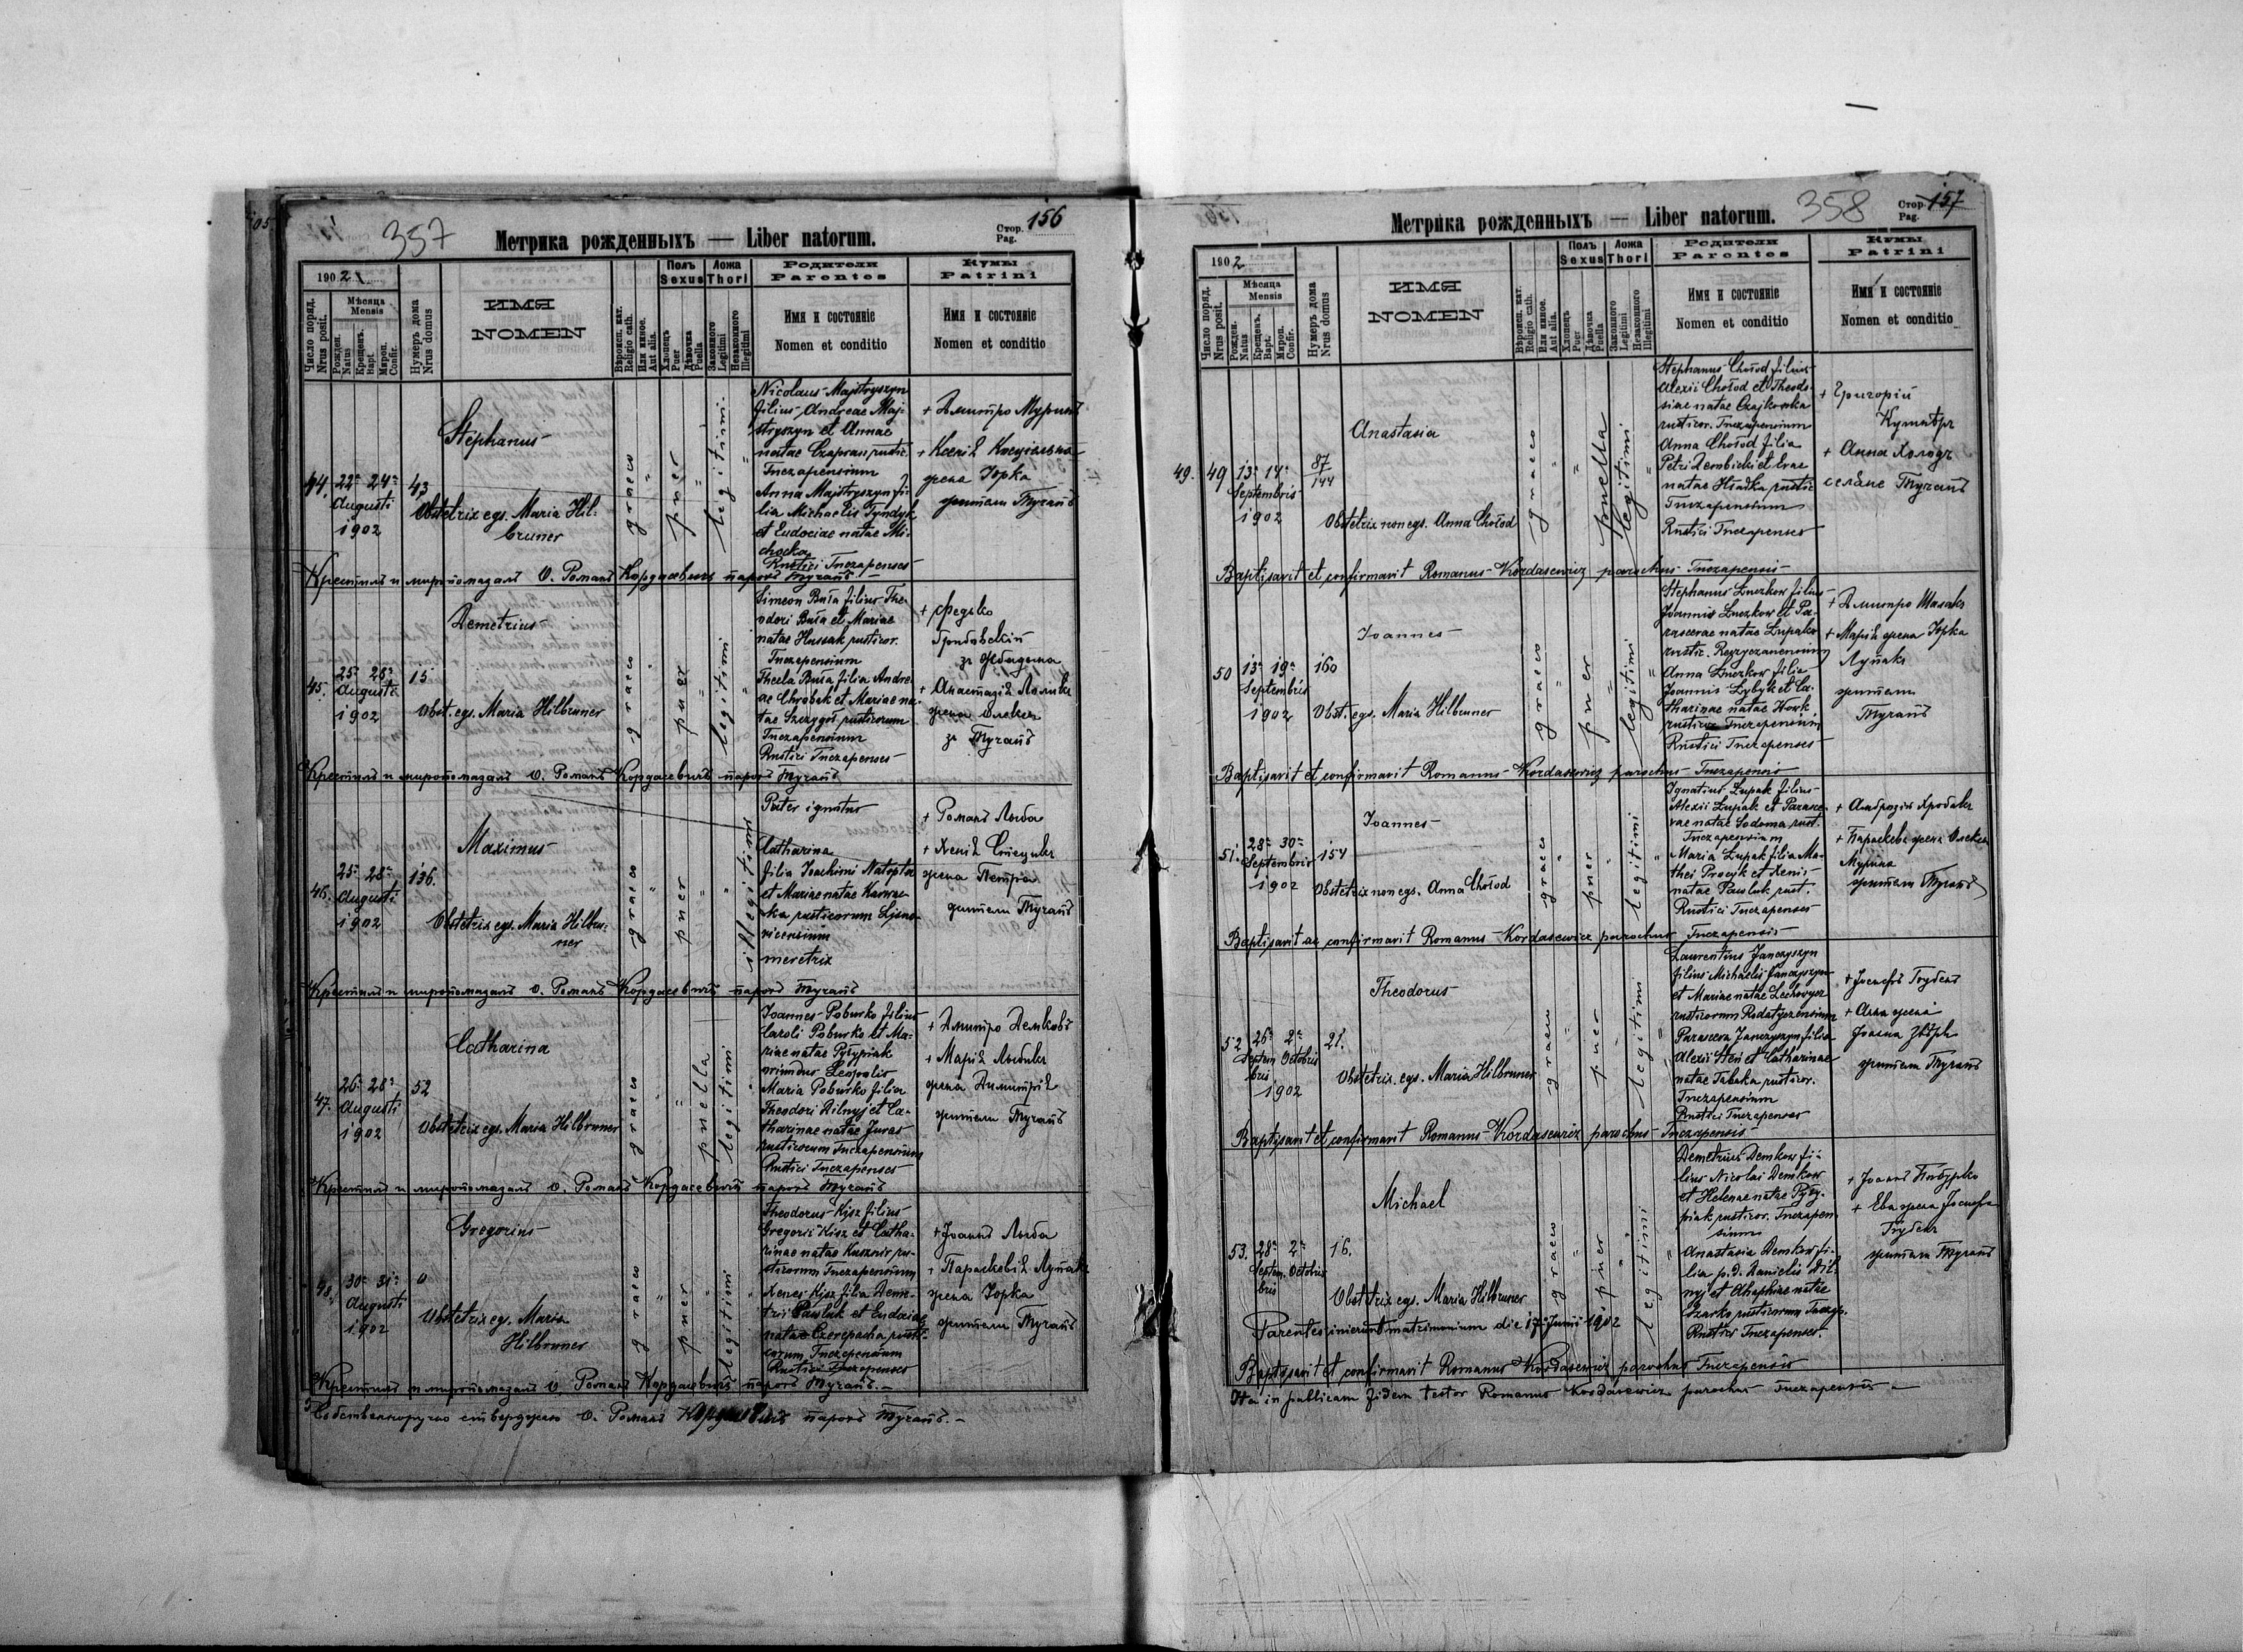 357
Метрика рожденныхъ — Liber natorum.
Стор. Pag. 156
1902
Число поряд. Nrus posit.
Мѣсяца Mensis
Рожден. Natus
Крещенъ. Bapt.
Мирон. Confir.
Нумеръ дома Nrus domus
ИМЯ
NOMEN
Вѣроисп. кат. Religio cath.
Или инное. Aut alia.
Полъ Sexus
Хлопецъ Puer
Дѣвочка Puella
Ложа Thori
Законного Legitimi
Незаконного Illegitimi
Родители Parentes
Имя и состояніе
Nomen et conditio
Кумы Patrini
Имя и состояніе
Nomen et conditio
44.
22a 24a
Augusti
1902
43
Stephanus
Obstetrix egs. Maria Hil-
bruner
graeco
puer
legitimi
Nicolaus Majstryszyn
filius Andreae Maj-
stryszyn et Annae
natae Czapran rustic.
Tuczapensium
Anna Majstryszyn fi-
lia Michaelis Tyndyk
et Eudociae natae Mi-
chocka
Rustici Tuczapenses
+ Дмитро
+ Ксенія
жена Юрка
жители Тучапъ
Крестилъ и миропомазалъ о. Романъ Кордасевичъ парохъ Тучапъ
45.
25a 28a
Augusti
1902
15
Demetrius
Obst. egs. Maria Hilbruner
graeco
puer
legitimi
Simeon Buła filius The-
odori Buła et Mariae
natae Hussak rusticor.
Tuczapensium
Thecla Buła filia Andre-
ae Chrobak et Mariae na-
tae Szczygoł rusticorum
Tuczapensium
Rustici Tuczapenses
+ Федько
+ Анастазія
жена Олекси
зъ Тучапъ
Крестилъ и миропомазалъ о. Романъ Кордасевичъ парохъ Тучапъ
46.
25a 28a
Augusti
1902
136.
Maximus
Obstetrix egs. Maria Hilbru-
ner
graeco
puer
illegitimi
Pater ignotus
Catharina
filia Joachimi Natopta
et Mariae natae
rusticorum
meretrix
+ Романъ Лыба
+ Ксенія
жена Петра
жители Тучапъ
Крестилъ и миропомазалъ о. Романъ Кордасевичъ парохъ Тучапъ
47.
26a 28a
Augusti
1902
52
Catharina
Obstetrix egs. Maria Hilbruner
graeco
puella
legitimi
Joannes Poburko filius
Caroli Poburko et Ma-
riae natae Pyżypiak
oriundus Leopolis
Maria Poburko filia
Theodori Dilnyj et Ca-
tharinae natae Juras
rusticorum Tuczapensium
Rustici Tuczapenses
+ Дмитро Демковъ
+ Марія
жена Димитрія
жители Тучапъ
Крестилъ и миропомазалъ о. Романъ Кордасевичъ парохъ Тучапъ
48.
30a 31a
Augusti
1902
0
Gregorius
Obstetrix eg. Maria
Hilbruner
graeco
puer
legitimi
Theodorus Kisz filius
Gregorii Kisz et Catha-
rinae natae Kusznir ru-
sticorum Tuczapensium
Xenes Kisz filia Deme-
trii Pawluk et Eudociae
natae Czerepacha rusti-
corum Tuczapensium
Rustici Tuczapenses
+ Іоаннъ Лыба
+ Параскевія Лупакъ
жена Юрка
жители Тучапъ
Крестилъ и миропомазалъ о. Романъ Кордасевичъ парохъ Тучапъ.
Собственноручно стверджаю о. Романъ Кордасевичъ парохъ Тучапъ.
358
Метрика рожденныхъ — Liber natorum.
Стор. Pag. 157
1902
Число поряд. Nrus posit.
Мѣсяца Mensis
Рожден. Natus
Крещенъ. Bapt.
Мирон. Confir.
Нумеръ дома Nrus domus
ИМЯ
NOMEN
Вѣроисп. кат. Religio cath.
Или инное. Aut alia.
Полъ Sexus
Хлопецъ Puer
Дѣвочка Puella
Ложа Thori
Законного Legitimi
Незаконного Illegitimi
Родители Parentes
Имя и состояніе
Nomen et conditio
Кумы Patrini
Имя и состояніе
Nomen et conditio
49. 49
13a 14a
Septembris
1902
87
144
Anastasia
Obstetrix non egs. Anna Chołod
graeco
puella
legitimi
Stephanus Chołod filius
Alexii Chołod et Theodo-
siae natae Czajkowska
rusticor. Tuczapensium
Anna Chołod filia
Petri Zerobicki et Evae
natae Hładka rustic
Tuczapensium
Rustici Tuczapenses
+ Григорій
+ Анна Холодъ
селяне Тучапъ
Baptisavit et confirmavit Romanus Kordasewicz parochus Tuczapensis
50
13a 19a
Septembris
1902
160
Joannes
Obst. egs. Maria Hilbruner
graeco
puer
legitimi
Stephanus Łuczkow filius
Joannis Łuczkow et Pa-
rascevae natae Łupako
rustic.
Anna Łuczkow filia
Joannis Łybyk et Ca-
tharinae natae Hork
rusticor Tuczapensium
Rustici Tuczapenses
+ Дмитро
+ Марія жена Юрка
Лупакъ
жители
Тучапъ
Baptisavit et confirmavit Romanus Kordasewicz parochus Tuczapensis
51.
28a 30a
Septembris
1902
154
Joannes
Obstetrix non egs. Anna Chołod
graeco
puer
legitimi
Ignatius Łupak filius
Alexii Łupak et Parasce-
vae natae Sodoma rust.
Tuczapensium
Maria Łupak filia Ma-
thei Procyk et Xenis
natae Pawluk rust.
Rustici Tuczapenses
+ Амброзій Хробакъ
+ Параскева жена Олекси
Мурина
жители Тучапъ
Baptisavit ac confirmavit Romanus Kordasewicz parochus Tuczapensis
52
26a 2a
Septem- Octobris
bris
1902
21.
Theodorus
Obstetrix. egs. Maria Hilbruner
graeco
puer
legitimi
Laurentius Janczyszyn
filius Michaelis Janczyszyn
et Mariae natae Lechowycz
rusticorum Rodatyczensium
Parasceva Janczyszyn filia
Alexii Steń et Catharinae
natae Tabaka rusticor.
Tuczapensium
Rustici Tuczapenses
+ Іосифъ Грубець
+ Анна жена
Іоанна
жители Тучапъ
Baptisavit et confirmavit Romanus Kordasewicz parochus Tuczapensis
53.
28a 2a
Septem- Octobris
bris
16.
Michael
Obstetrix egs. Maria Hilbruner
graeco
puer
legitimi
Demetrius Demkow fi-
lius Nicolai Demkow
et Helenae natae Pyży-
piak rusticor. Tuczapen-
sium
Anastasia Demkow fi-
lia p. d. Danielis Dil-
nyj et Ahaphiae natae
Czarko rusticorum Tuczap.
Rustici Tuczapenses.
+ Іоаннъ Побурко
+ Ева жена Іосифа
Грубець
жители Тучапъ
Parentes inierunt matrimonium die 17 Junii 1902
Baptisavit et confirmavit Romanus Kordasewicz parochus Tuczapensis
Ita in publicam fidem testor Romanus Kordasewicz parochus Tuczapensis